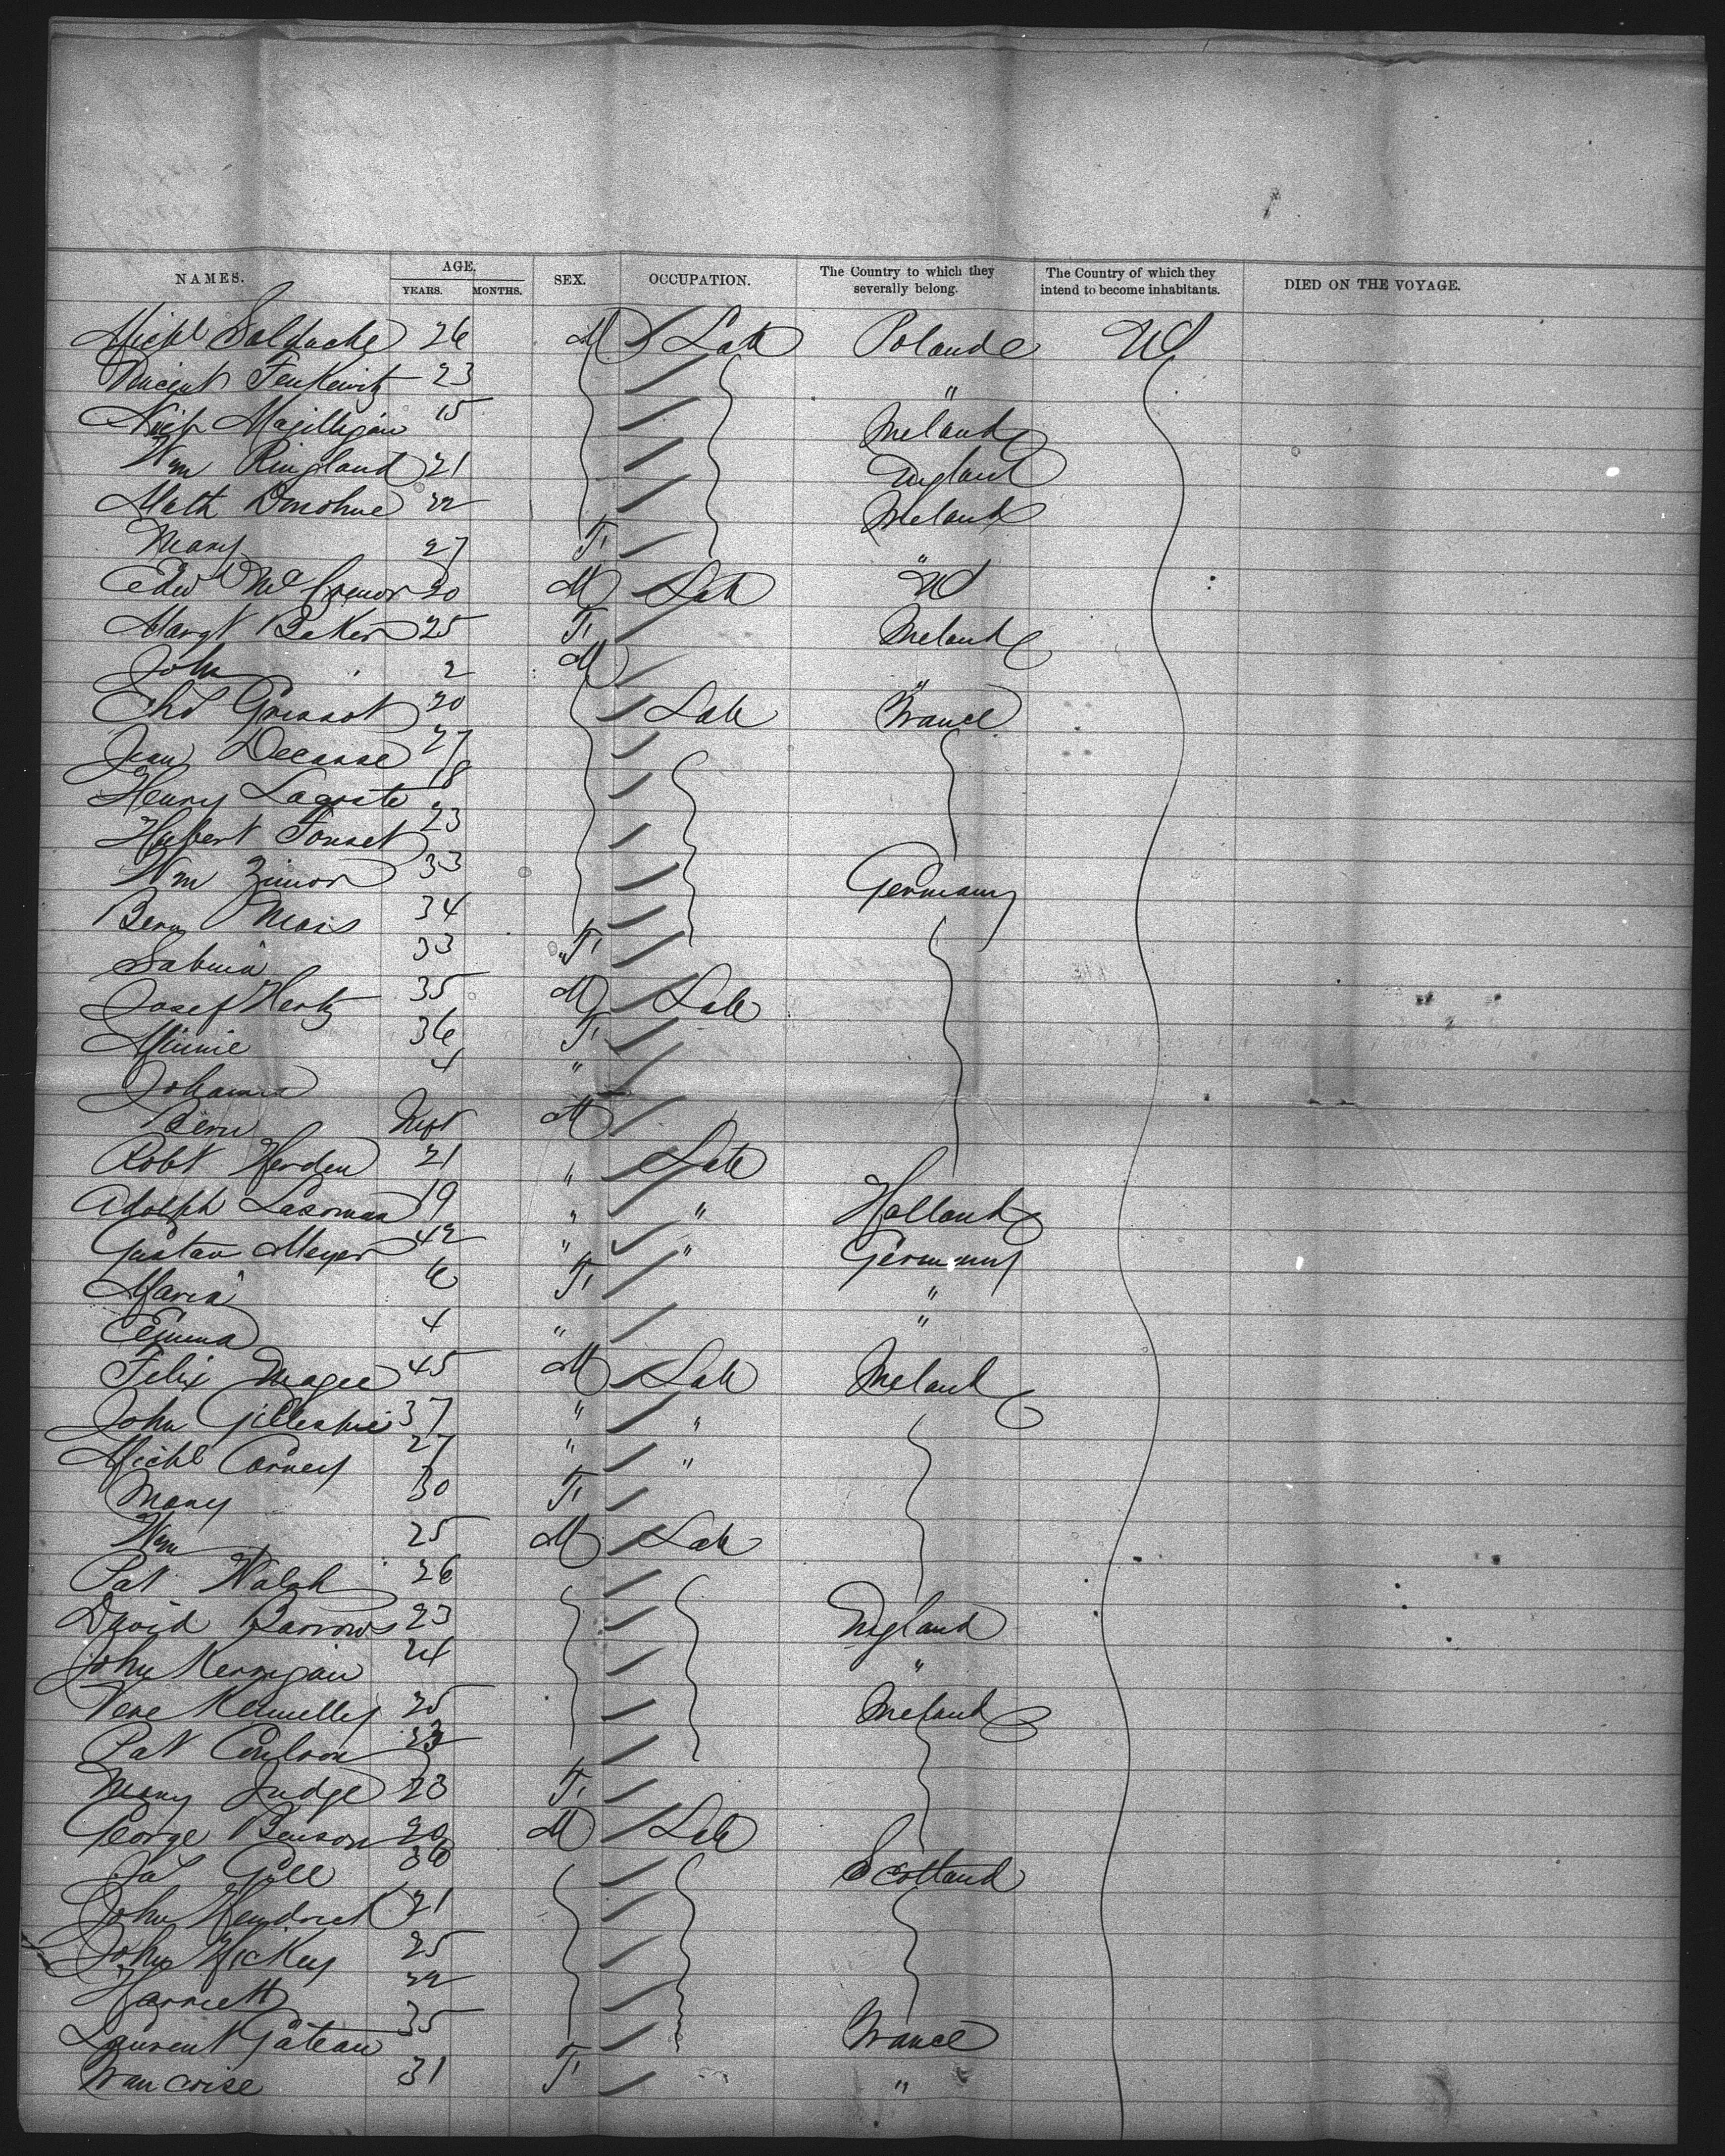 NAMES. AGE. YEARS. MONTHS. SEX. OCCUPATION. The Country to which they severally belong. The Country of which they intend to become inhabitants. DIED ON THE VOYAGE.
Michl 26 M Lab Poland US
Vincent 23 "
Magilligan 15 Ireland
Wm Ringland 21 England
Math Donohue 22 Ireland
Mary 27 F "
Edwd 20 M Lab US
Margt Baker 25 F Ireland
John 2 M "
Chs 20 Lab France
Jean Decasse 27
Henry Lacoste 18
Hubert 23
Wm Zimor 33 Germany
34
Sabina 33 F
Josef Hertz 35 M Lab
Minnie 36 F
Johanna 4 "
M
Robt Herden 21 " Lab
Adolph 19 " " Holland
Gustav Meyer 42 " " Germany
Maria 6 F "
Emma 4 " "
Felix Magee 45 M Lab Ireland
John Gillespie 37 " "
Michl Carney 27 " "
Mary 30 F
Wm 25 M Lab
Pat Walsh 26
David Barrows 23 England
John Kerrigan 24 "
25 Ireland
Pat 23
Mary Judge 23 F
George Benson 20 M Lab
Jas Gill 36 Scotland
John Hendrick 21
John Hickey 25
Harriett 22
Laurent Gateau 35 France
Francoise 31 F "